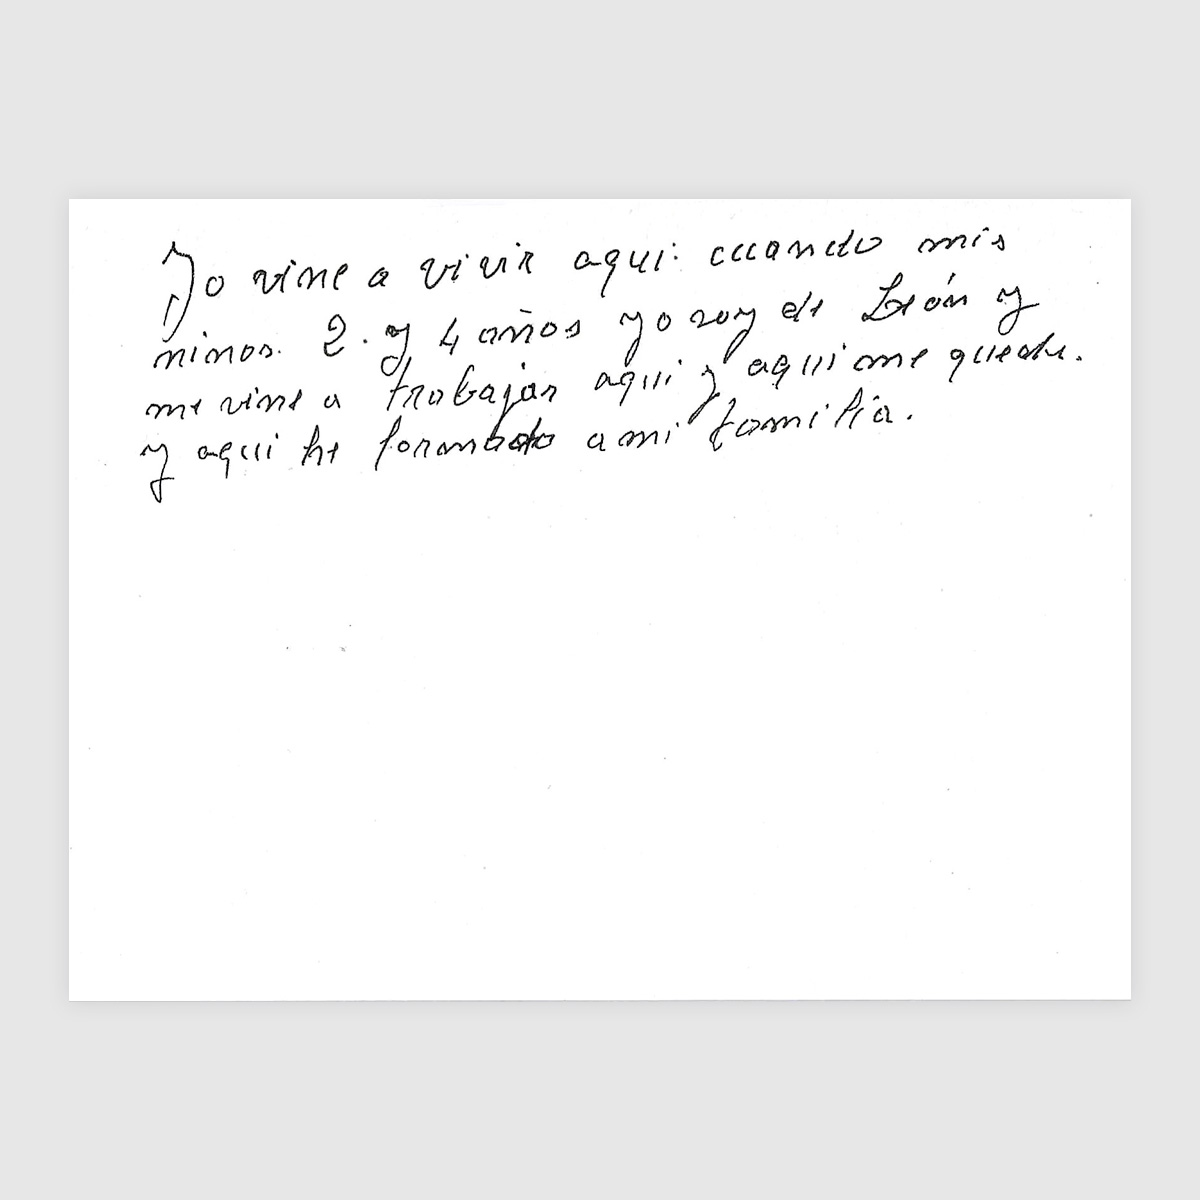 Yo vine a vivir aqui. cuando mis
ninos. 2. y 4 años yo soy de León y
me vine a trabajar aqui y aqui me quede.
y aqui he formado a mi familia.